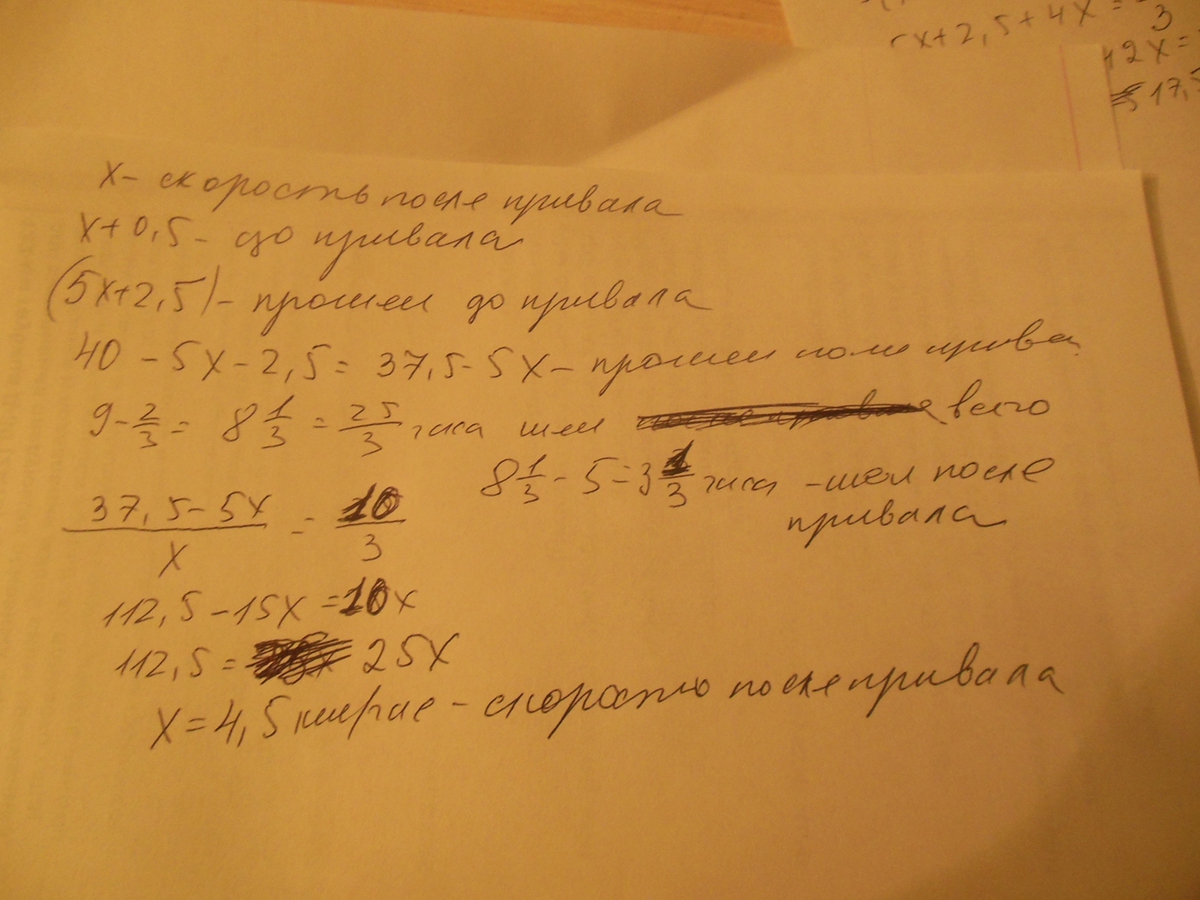 5x+2,5+4x=
3
+2x=
17,5
x - скорость после привала
x+0,5 - до привала
(5x+2,5) - прошел до привала
40 - 5x - 2,5 = 37,5 - 5x - прошел после прива
9 - 2/3 = 8 1/3 = 25/3 часа шел всего
8 1/3 - 5 = 3 1/3 часа - шел после
привала
37,5 - 5x / x = 10/3
112,5 - 15x = 10x
112,5 = 25x
x = 4,5 км/час - скорость после привала